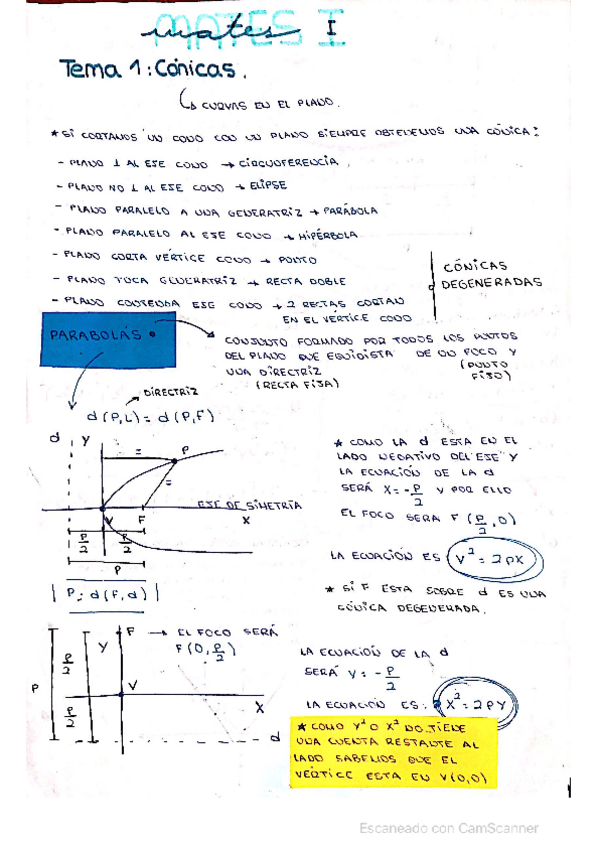 MATES I
mates I
Tema 1: Cónicas.
↳ CURVAS EN EL PLANO.
* SI CORTAMOS UN CONO CON UN PLANO SIEMPRE OBTENEMOS UNA CÓNICA:
- PLANO ⊥ AL EJE CONO → CIRCUNFERENCIA.
- PLANO NO ⊥ AL EJE CONO → ELIPSE
- PLANO PARALELO A UNA GENERATRIZ → PARÁBOLA
- PLANO PARALELO AL EJE CONO → HIPÉRBOLA
- PLANO CORTA VÉRTICE CONO → PUNTO
- PLANO TOCA GENERATRIZ → RECTA DOBLE
- PLANO CONTENGA EJE CONO → 2 RECTAS CORTAN
EN EL VÉRTICE CONO
CÓNICAS
DEGENERADAS
PARABOLAS •
CONJUNTO FORMADO POR TODOS LOS PUNTOS
DEL PLANO QUE EQUIDISTA DE UN FOCO Y
(PUNTO
FIJO)
UNA DIRECTRIZ
(RECTA FIJA)
DIRECTRIZ
d(P,L) = d(P,F)
d Y = P
=
EJE DE SIMETRÍA
V F X
P/2 P/2
P
| P: d(F,d) |
* COMO LA d ESTA EN EL
LADO NEGATIVO DEL EJE Y
LA ECUACIÓN DE LA d
SERÁ X = -P/2 Y POR ELLO
EL FOCO SERA F (P/2, 0)
LA ECUACIÓN ES Y² = 2PX
* SI F ESTA SOBRE d ES UNA
CÓNICA DEGENERADA.
F → EL FOCO SERÁ
F(0, P/2)
P/2 Y
P V
P/2 X
d
LA ECUACIÓN DE LA d
SERÁ Y = -P/2
LA ECUACIÓN ES: X² = 2PY
* COMO Y² O X² NO TIENE
UNA CUENTA RESTANTE AL
LADO SABEMOS QUE EL
VÉRTICE ESTA EN V(0,0)
Escaneado con CamScanner